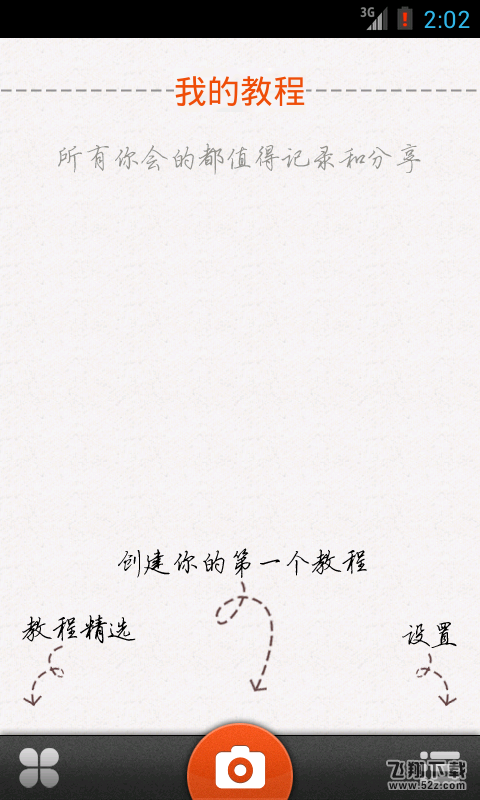 3G
2:02
我的教程
所有你会的都值得记录和分享
创建你的第一个教程
教程精选
设置
飞翔下载
www.52z.com